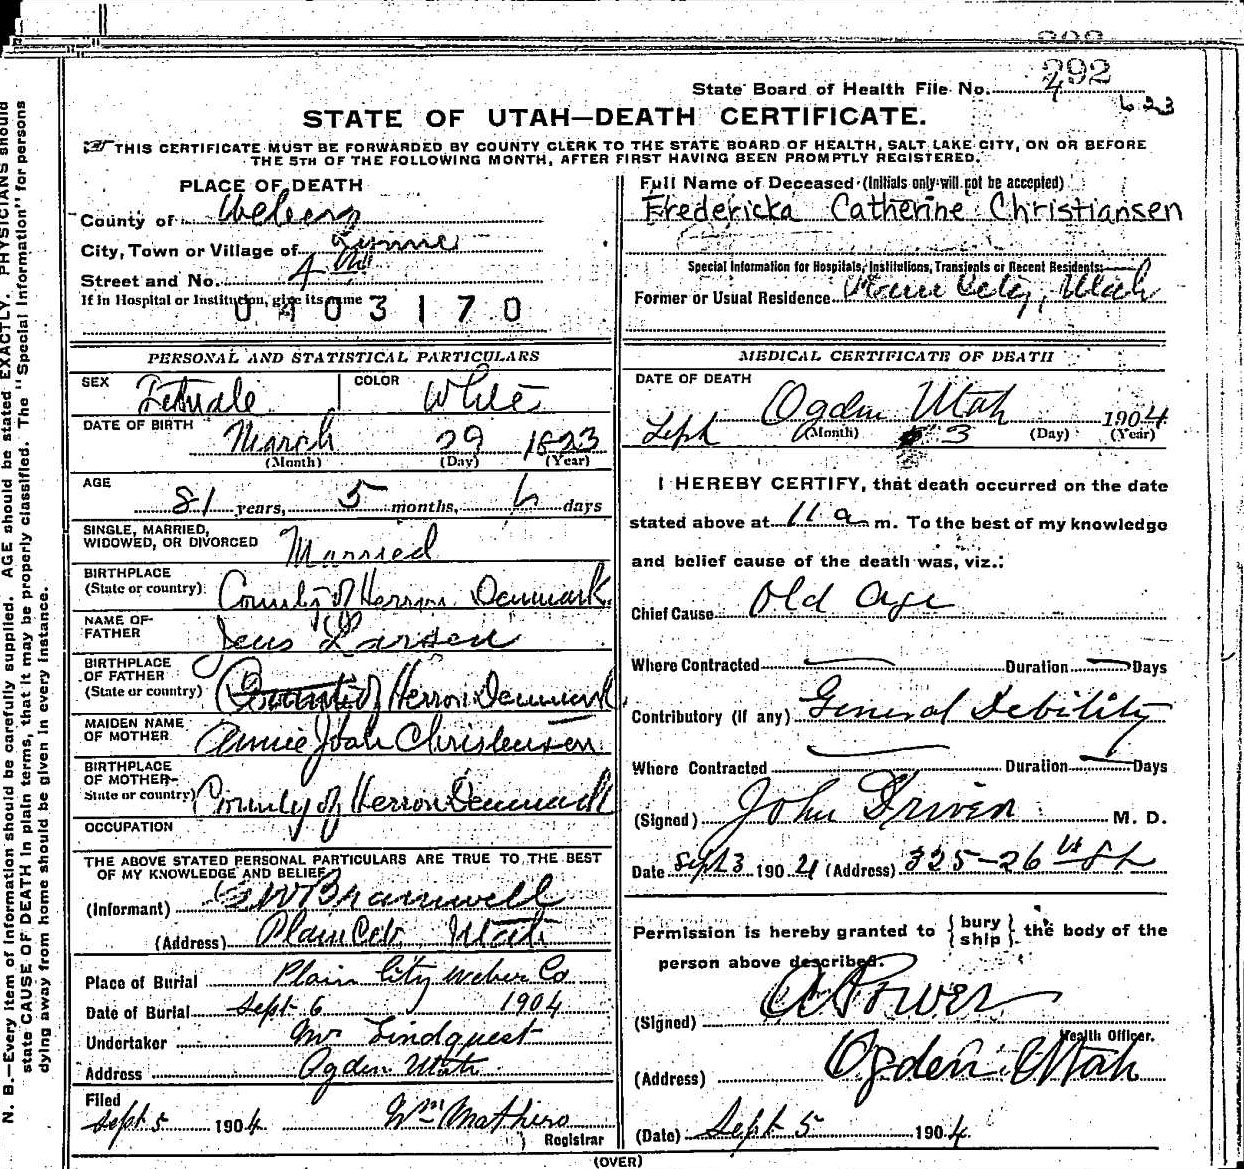 292
State Board of Health File No. 4
623
STATE OF UTAH—DEATH CERTIFICATE.
THIS CERTIFICATE MUST BE FORWARDED BY COUNTY CLERK TO THE STATE BOARD OF HEALTH, SALT LAKE CITY, ON OR BEFORE
THE 5TH OF THE FOLLOWING MONTH, AFTER FIRST HAVING BEEN PROMPTLY REGISTERED.
N. B.—Every item of information should be carefully supplied. AGE should be stated EXACTLY. PHYSICIANS should
state CAUSE OF DEATH in plain terms, that it may be properly classified. The "Special Information" for persons
dying away from home should be given in every instance.
PLACE OF DEATH
County of
City, Town or Village of Lynne
Street and No. 4th
If in Hospital or Institution, give its name
0403170
PERSONAL AND STATISTICAL PARTICULARS
SEX Female COLOR White
DATE OF BIRTH March 29 1823
(Month) (Day) (Year)
AGE
81 years, 5 months, 6 days
SINGLE, MARRIED,
WIDOWED, OR DIVORCED Married
BIRTHPLACE
(State or country) County of Herron Denmark
NAME OF
FATHER Jens Larsen
BIRTHPLACE
OF FATHER
(State or country) County of Herron Denmark
MAIDEN NAME
OF MOTHER Annie Joah Christensen
BIRTHPLACE
OF MOTHER
State or country) County of Herron Denmark
OCCUPATION
THE ABOVE STATED PERSONAL PARTICULARS ARE TRUE TO THE BEST
OF MY KNOWLEDGE AND BELIEF
(Informant) G W Bramwell
(Address) Plain City, Utah
Place of Burial Plain City Weber Co
Date of Burial Sept 6 1904
Undertaker Mr Lindquest
Address Ogden Utah
Filed
Sept 5 1904 Wm Mathiro
Registrar
Full Name of Deceased (Initials only will not be accepted)
Fredericka Catherine Christiansen
Special Information for Hospitals, Institutions, Transients or Recent Residents:
Former or Usual Residence Plain City, Utah
MEDICAL CERTIFICATE OF DEATH
DATE OF DEATH
Ogden Utah
Sept 3 1904
(Month) (Day) (Year)
I HEREBY CERTIFY, that death occurred on the date
stated above at 11 a m. To the best of my knowledge
and belief cause of the death was, viz.:
Chief Cause Old Age
Where Contracted — Duration — Days
Contributory (if any) General Debility
Where Contracted — Duration — Days
(Signed) John Driven M. D.
Date Sept 3 1904 (Address) 325-26th St
Permission is hereby granted to { bury
ship } the body of the
person above described.
(Signed) A Power
Health Officer.
(Address) Ogden Utah
(Date) Sept 5 1904
(OVER)